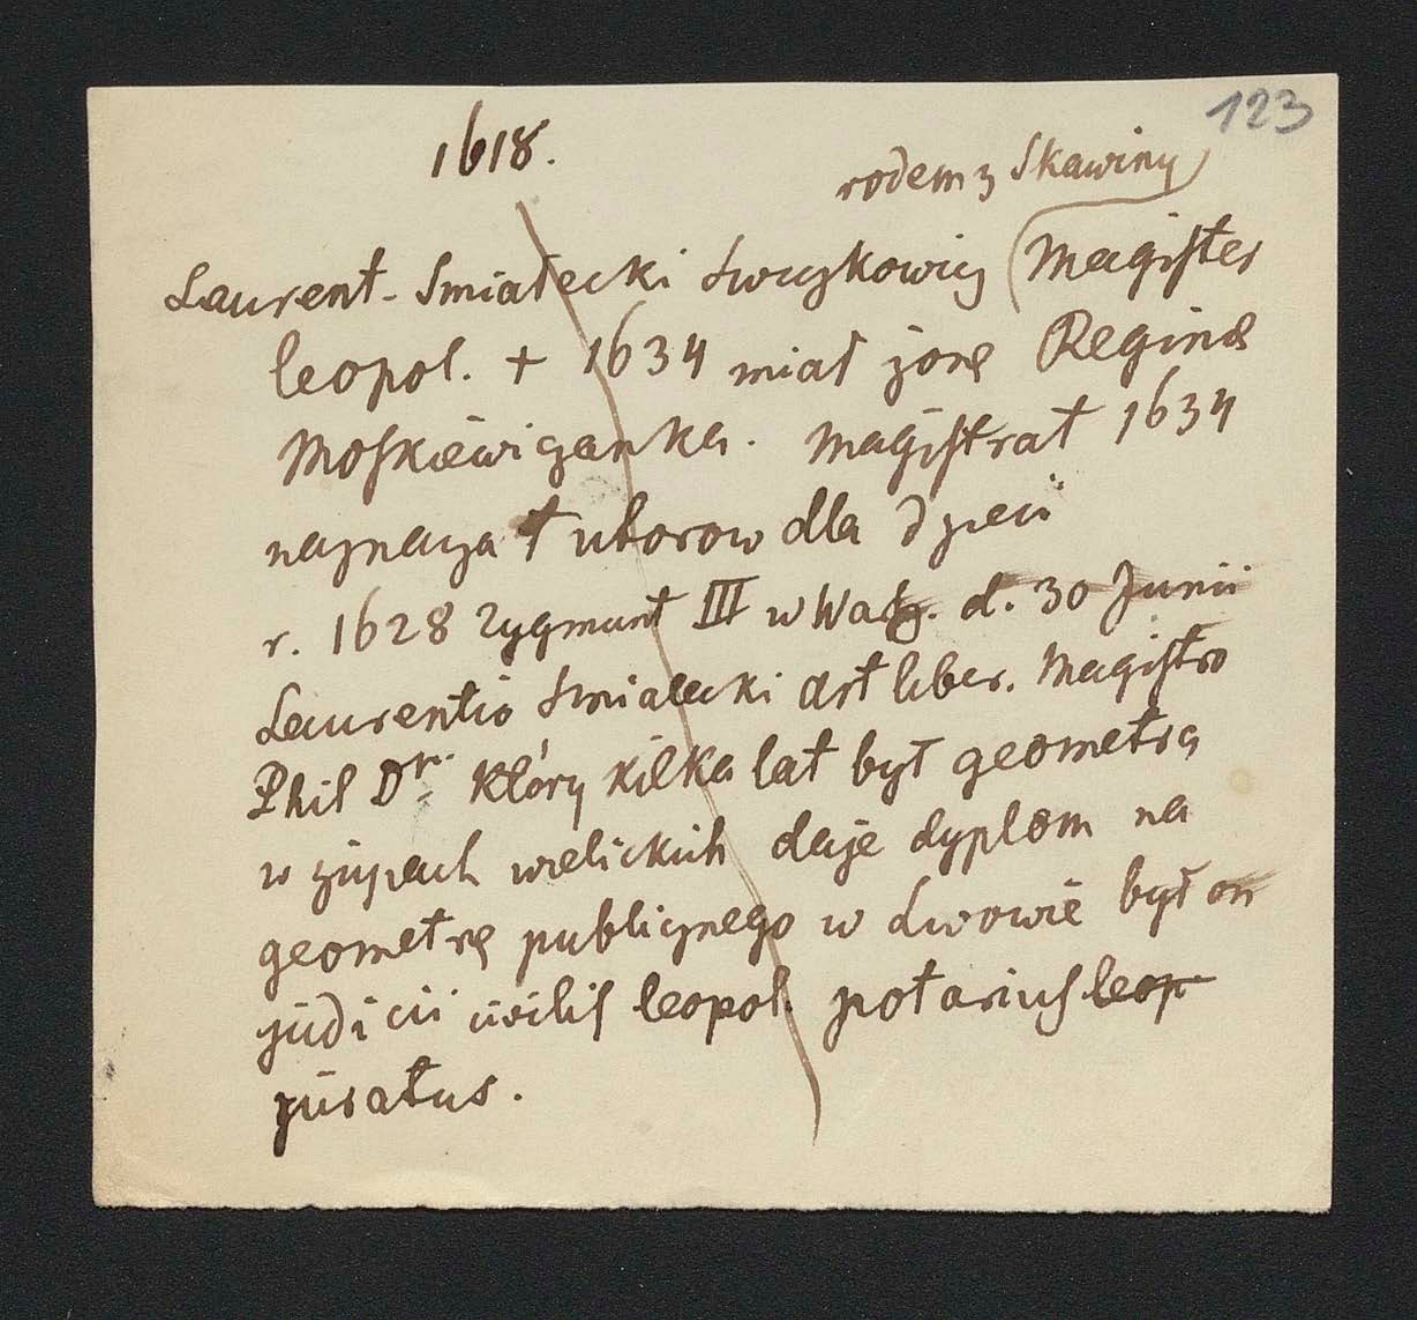 123
1618.
rodem z Skawiny
Laurent. Smiałecki Magister
leopol. + 1634 miał żonę Reginę
Moskiewiczanka. Magistrat 1634
naznacza ł uborow dla dzieci
r. 1628 Zygmunt III w Warsz. d. 30 Junii
Laurentio Smialecki art liber. Magistro
Phil Dr. który kilka lat był geometrą
w żupach wielickich daje dyplom na
geometrę publicznego w Lwowie był on
judicii civilis leopol. notarius leop
juratus.